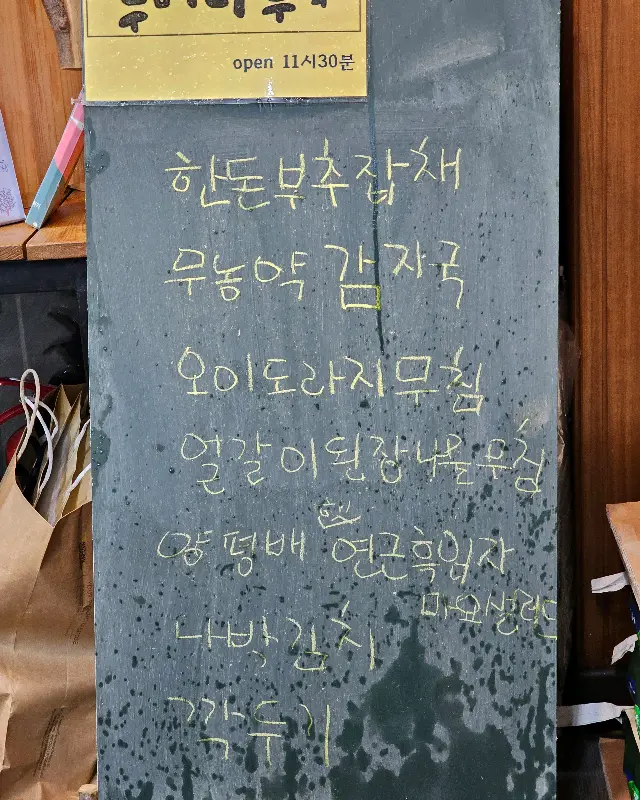 open 11시30분
한돈부추잡채
무농약 감자국
오이도라지무침
얼갈이된장나물무침
햇
양평배 연근흑임자
마요샐러드
나박김치
깍두기